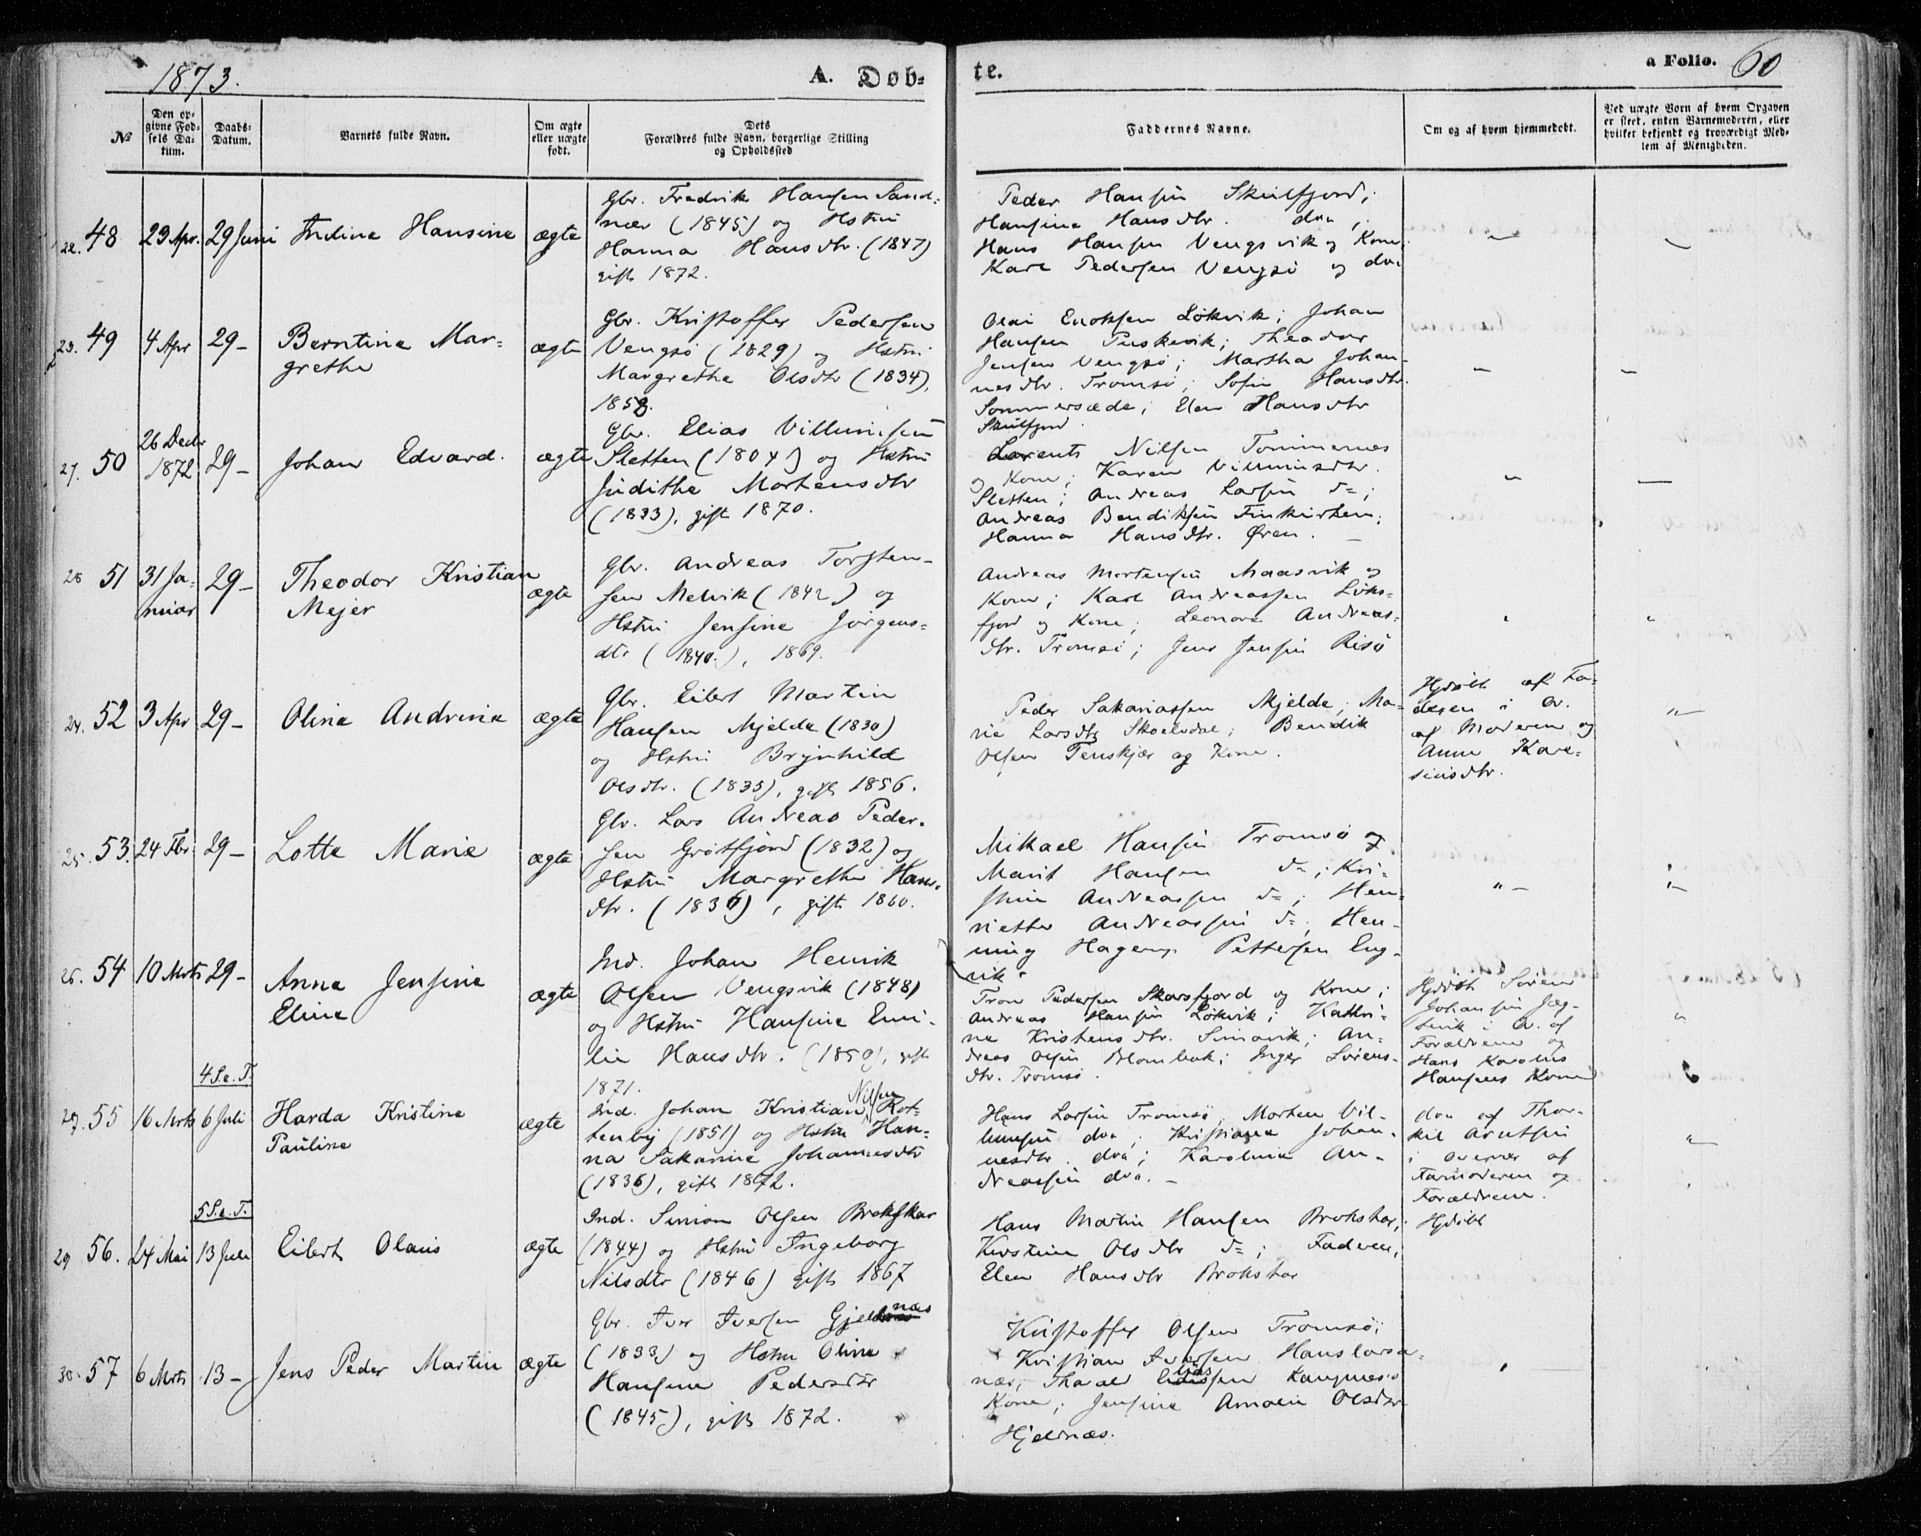 1873.
A. Døb-
te.
a Folio. 60
№
Den op-
givne Fød-
sels Da-
tum.
Daabs-
Datum.
Barnets fulde Navn.
Om ægte
eller uægte
født.
Dets
Forældres fulde Navn, borgerlige Stilling
og Opholdssted
Faddernes Navne.
Om og af hvem hjemmedøbt.
Ved uægte Børn af hvem Opgaven
er skeet, enten Barnemoderen, eller
hvilket bekjendt og troværdigt Med-
lem af Menigheden.
48
29 Juni
Indine Hansine
ægte
Gbr. Fredrik Hansen Sand-
nær (1845) og Hstru
Hanna Hansdtr. (1847)
gift 1872.
Peder Hansen Skulfjord;
Hansine Hansdtr. dva;
Hans Hansen Vengsvik og Kone;
Karl Pedersen Vengsø og dva
23. 49
4 Apr
29–
Berntine Mar-
grethe
ægte
Gbr. Kristoffer Pedersen
Vengsø (1829) og Hstru
Margrethe Olsdtr (1834),
1858.
Olai Enoksen Løkvik; Johan
Hansen Theodor
Jensen Vengsø; Martha Johan-
nesdtr. Tromsø; Sofie Hansdtr.
Sommersæde; Elen Hansdtr
Skulfjord.
27. 50
26 Decbr
1872
29–
Johan Edvard.
ægte
Gbr. Elias Villumsen
Sletten (1804) og Hstru
Judithe Mortensdtr
(1833), gift 1870.
Lorents Nilsen Tommernes
og Kone; Karen Villumsdtr.
Sletten; Andreas Larsen d=;
Andreas Bendiksen Finkirken;
Hanna Hansdtr. Øren.
28 51
31 Ja-
nuar
29–
Theodor Kristian
Mejer
ægte
Gbr. Andreas Torsten-
sen Melvik (1842) og
Hstru Jensine Jørgens-
dtr (1840.), 1869.
Andreas Mortensen Maasvik og
Kone; Karl Andreassen Løks-
fjord og Kone; Leonore Andreas-
dtr. Tromsø; Jens Jensen Risø
24. 52
3 Apr
29–
Oline Andrine
ægte
Gbr. Eilert Martin
Hansen Mjelde (1830)
og Hstru Brynhild
Olsdtr. (1835), gift 1856.
Peder Sakariassen Mjelde; Ma-
rie Larsdtr Skoelvdal; Bendik
Olsen Tenskjær og Kone.
Hjdøbt af Fa-
deren i Ov.
af Moderen og
Anne Kare-
25. 53.
24 Fbr
29–
Lotte Marie
ægte
Gbr. Lars Andreas Peder-
sen Grøtfjord (1832) og
Hstru Margrethe Hans-
dtr. (1836), gift 1860.
Mikael Hansen Tromsø og
Marit Hansen d=; Kri-
stine Andreassen d=; Hen-
riette Andreassen d=; Hen-
ning Hagerup Pettersen Eng-
vik
26. 54
10 Mrts
29–
Anne Jensine
Eline
ægte
Ind. Johan Henrik
Olsen Vengsvik (1848)
og Hstru Hansine Emi-
lie Hansdtr. (1850), gift
1871.
Tron Pedersen Skarsfjord og Kone;
Andreas Hansen Løkvik; Kathri-
ne Kristensdtr. Simavik; An-
dreas Olsen Blombak; Inger Sørens-
dtr. Tromsø.
Hjdøbt Sören
Johansen Jæg-
i Ov. af
Forældrene og
Hans Karolus
Hansens Kone
4 S. e. T.
55
16 Mrts
6 Juli
Harda Kristine
Pauline
ægte
Nilsen
Ind. Johan Kristian Kot-
tenbej (1851) og Hstru Han-
na Sakarine Johannesdtr
(1836), gift 1872.
Hans Larsen Tromsø; Morten Vil-
lumsen dva; Kristiane Johan-
nesdtr. dva; Karoline An-
dreassen dva.
dva af Thor-
kil Arntsen
i Overvær af
Farmoderen og
Forældrene.
5 S. e. T.
29 56.
24 Mai
13 Juli
Eilert Olaus
ægte
Ind. Simon Olsen Brokskar
(1844) og Hstru Ingeborg
Nilsdtr (1846) gift 1867
Hans Martin Hansen Brokskar;
Kirstine Olsdtr d=; Faderen;
Elen Hansdtr Brokskar
Hjdøbt
30. 57
6 Mrts
13–
Jens Peder Martin
ægte
Gbr. Iver Iversen Gjelnæs
(1833) og Hstru Oline
Hansine Pedersdtr
(1845), gift 1872.
Kristoffer Olsen Tromsø;
Kristian Iversen Hanslarsa-
nær;
Kone; Jensine Amalie Olsdtr
Hjelnæs.